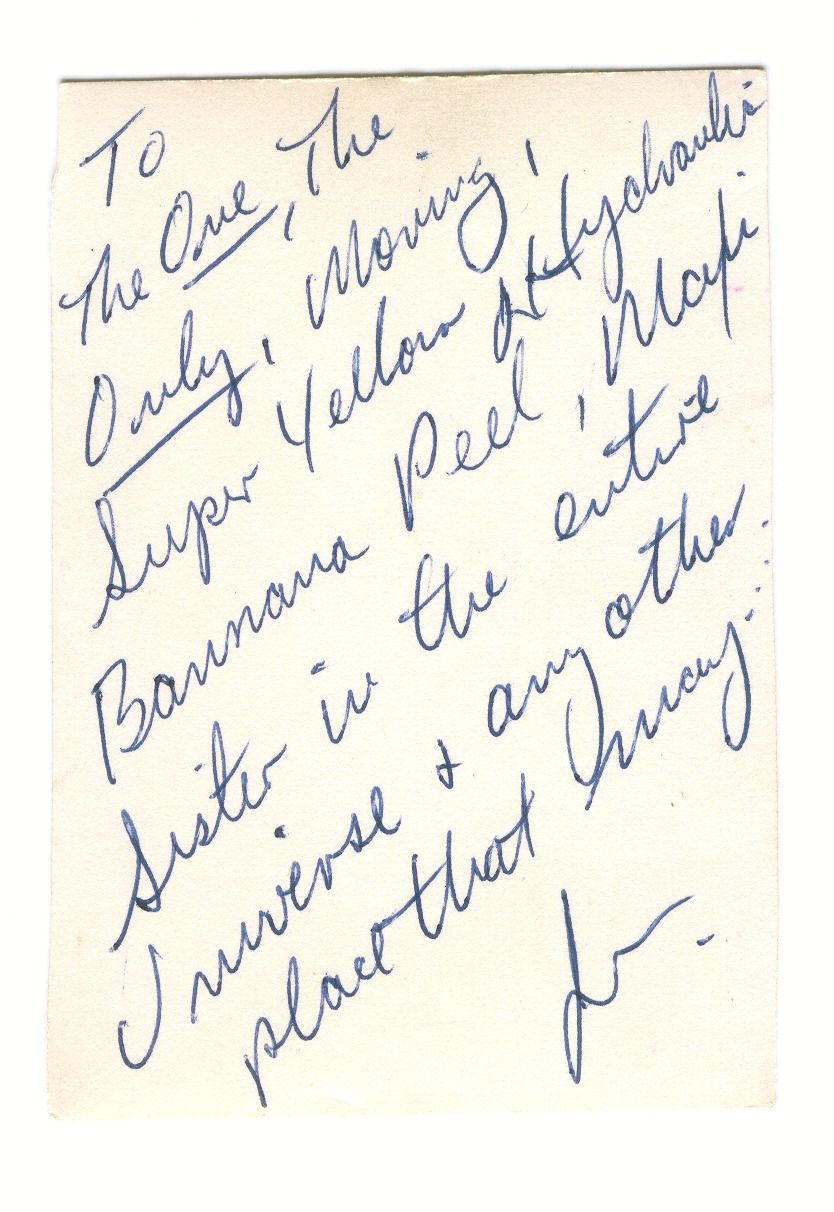 To
The One, The
Only, Moving,
Super Yellow Hydraulic
Bannana Peel, Maxi
Sister in the entire
Universe & any other
place that